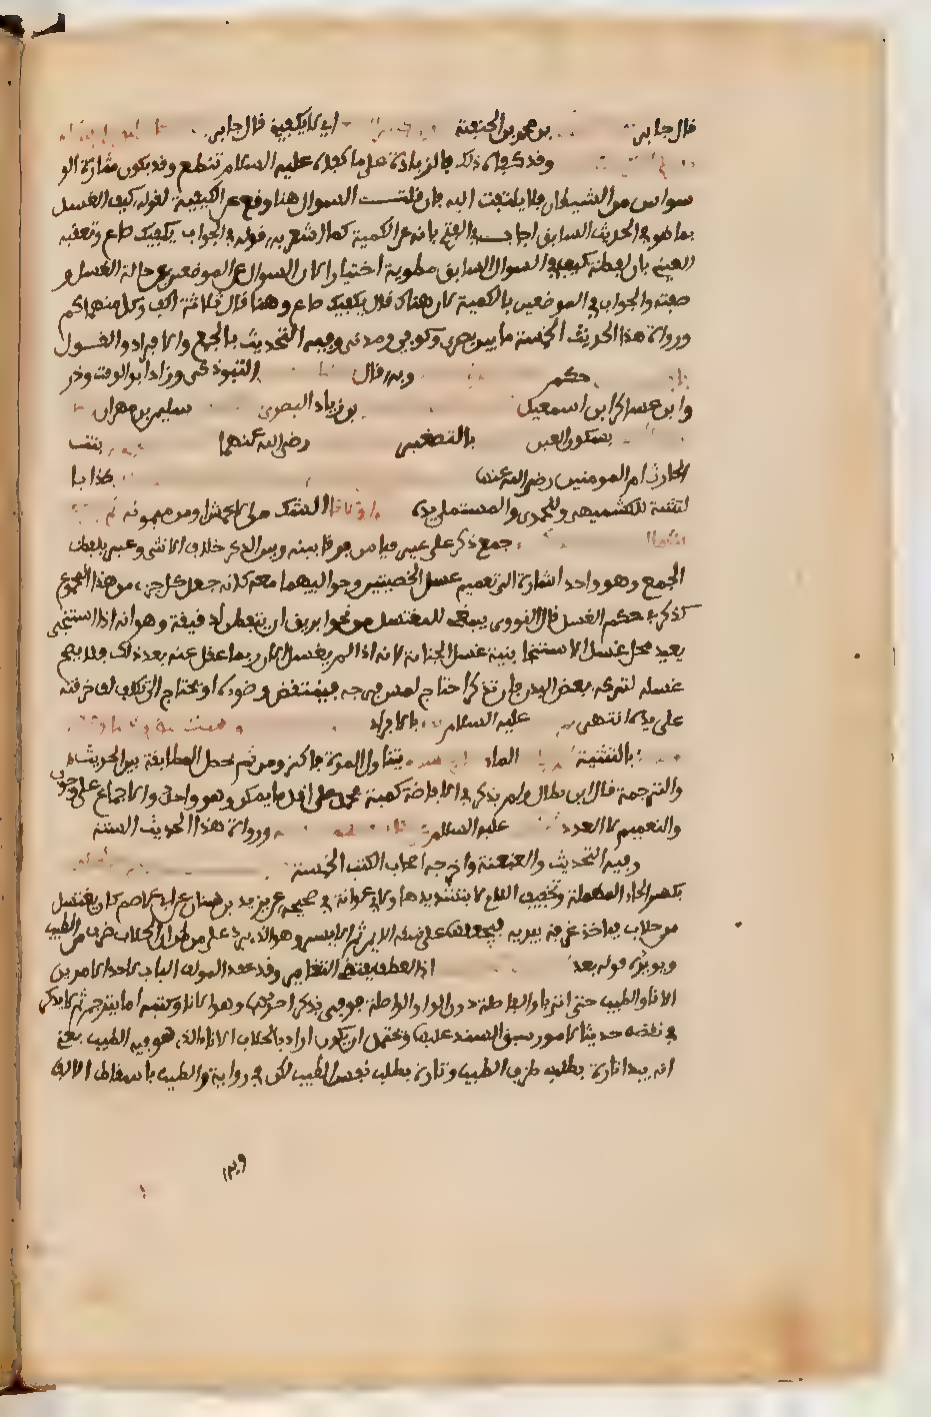 قال جابر بن محمد بن الحنفية اي كيفية قال جابر
وقد كفاه ذلك فالزيادة على ما كفاه عليه السلام تنطع وقد يكون مثاره الو
سواس من الشيطان فلا يلتفت اليه فان قلت السوال هنا وقع عن الكيفية لقوله كيف الغسل
بما هو في الحديث السابق اجاب في الفتح بانه عن الكمية كما اشعر به قوله في الجواب يكفيك صاع وتعقبه
العيني بان لفظة كيف في السوال السابق مطوية اختيارا لان السوال في الموضعين عن حالة الغسل و
صفته والجواب في الموضعين بالكمية لان هناك قال يكفيك صاع وهنا قال ثلاثة اكف وكل منهما كم
ورواة هذا الحديث الخمسة ما بين بصري وكوفي ومدني وفيه التحديث بالجمع والافراد والقول
وبه قال التبوذكي وزاد ابو الوقت وذر
وابن عساكر ابن اسمعيل بن زياد البصري سليمن بن مهران
بسكون العين بالتصغير رضي الله عنهما بنت
الحارث ام المومنين رضي الله عنها كذا با
لتثنية للكشميهني وللحموي والمستملي يده الشك من الاعمش او من ميمونة
جمع ذكر على غير قياس فرقا بينه وبين الذكر خلاف الانثى وعبر بلفظ
الجمع وهو واحد اشارة الى تعميم غسل الخصيتين وحواليهما معه كانه جعل كل جزء من هذا المجموع
كذكر في حكم الغسل قال النووي ينبغي للمغتسل من نحو ابريق ان يتفطن لدقيقة وهو انه اذا استنجى
يعيد محل غسل الاستنجا بنية غسل الجنابة لانه اذا لم يغسل الان ربما غفل عنه بعد ذلك فلا يصح
غسله لتركه بعض البدن فان تذكر احتاج لمس فرجه فينتقض وضوءه او يحتاج الى تكلف لف خرقة
على يده انتهى عليه السلام بالافراد
بالتثنية الماء يتناول المرة فاكثر ومن ثم تحصل المطابقة بين الحديث
والترجمة قال ابن بطال ولم يذكر في الافاضة كمية فحمل على اقل ما يمكن وهو واحدة والاجماع على وجوب
والتعميم لا العدد عليه السلام ورواة هذا الحديث الستة
وفيه التحديث والعنعنة واخرجه اصحاب الكتب الخمسة
بكسر الحاء المهملة وتخفيف اللام لا بتشديدها ولابي عوانة في صحيحه عن يزيد بن سنان عن ابي عاصم كان يغتسل
من حلاب فياخذ غرفة بيديه فيجعلها على شقه الايمن ثم الايسر وهو الذي يرد على من ظن ان الحلاب ضرب من الطيب
ويويده قوله بعد اذ العطف يقتضي التغاير وقد عقد المولف الباب لاحد الامرين
الانا والطيب حتى اتى باو الفاصلة دون الواو الواصلة فوفى بذكر احدهما وهو الانا وكثيرا ما يترجم ثم لا يذكر
في بعضه حديثا لامور سبق السند عليها ويحتمل ان يكون اراد بالحلاب الانا الذي هو فيه الطيب يعني
انه يبدا تارة بطلب ظرف الطيب وتارة بطلب نفس الطيب لكن في رواية والطيب باسقاط الالف